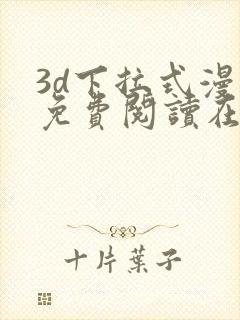 3d下拉式漫
免費閱讀在
十片葉子